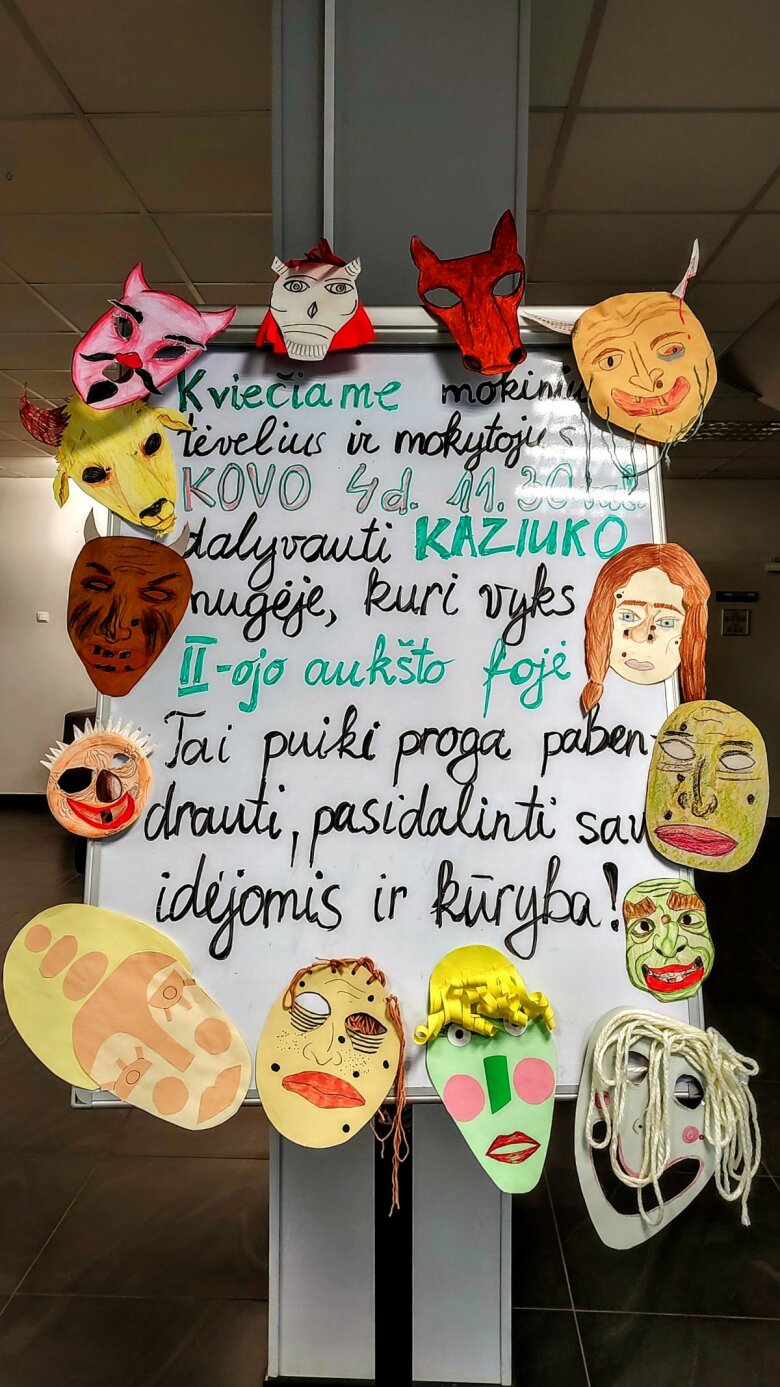 Kviečiame mokinių
tėvelius ir mokytojus
KOVO 4 d. 11.30 val.
dalyvauti KAZIUKO
mugėje, kuri vyks
II-ojo aukšto fojė
Tai puiki proga paben-
drauti, pasidalinti sav
idėjomis ir kūryba!